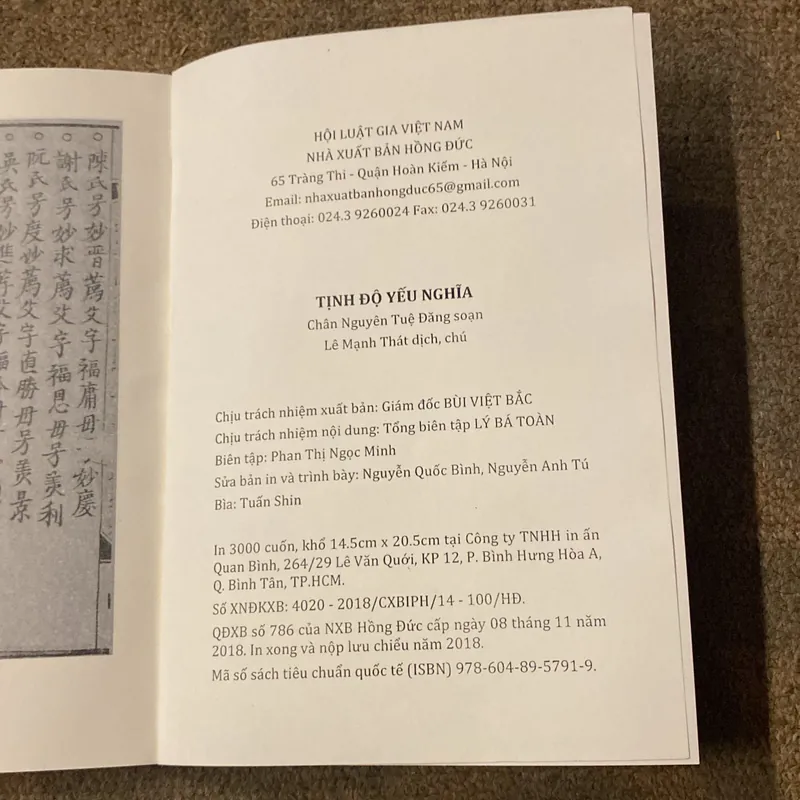 陳氏号妙晋薦父字福庸毋 妙慶
謝氏号妙求薦父字福恩毋号羙利
阮氏号度妙薦父字直勝毋号羙景
HỘI LUẬT GIA VIỆT NAM
NHÀ XUẤT BẢN HỒNG ĐỨC
65 Tràng Thi - Quận Hoàn Kiếm - Hà Nội
Email: nhaxuatbanhongduc65@gmail.com
Điện thoại: 024.3 9260024 Fax: 024.3 9260031
TỊNH ĐỘ YẾU NGHĨA
Chân Nguyên Tuệ Đăng soạn
Lê Mạnh Thát dịch, chú
Chịu trách nhiệm xuất bản: Giám đốc BÙI VIỆT BẮC
Chịu trách nhiệm nội dung: Tổng biên tập LÝ BÁ TOÀN
Biên tập: Phan Thị Ngọc Minh
Sửa bản in và trình bày: Nguyễn Quốc Bình, Nguyễn Anh Tú
Bìa: Tuấn Shin
In 3000 cuốn, khổ 14.5cm x 20.5cm tại Công ty TNHH in ấn
Quan Bình, 264/29 Lê Văn Quới, KP 12, P. Bình Hưng Hòa A,
Q. Bình Tân, TP.HCM.
Số XNĐKXB: 4020 - 2018/CXBIPH/14 - 100/HĐ.
QĐXB số 786 của NXB Hồng Đức cấp ngày 08 tháng 11 năm
2018. In xong và nộp lưu chiểu năm 2018.
Mã số sách tiêu chuẩn quốc tế (ISBN) 978-604-89-5791-9.